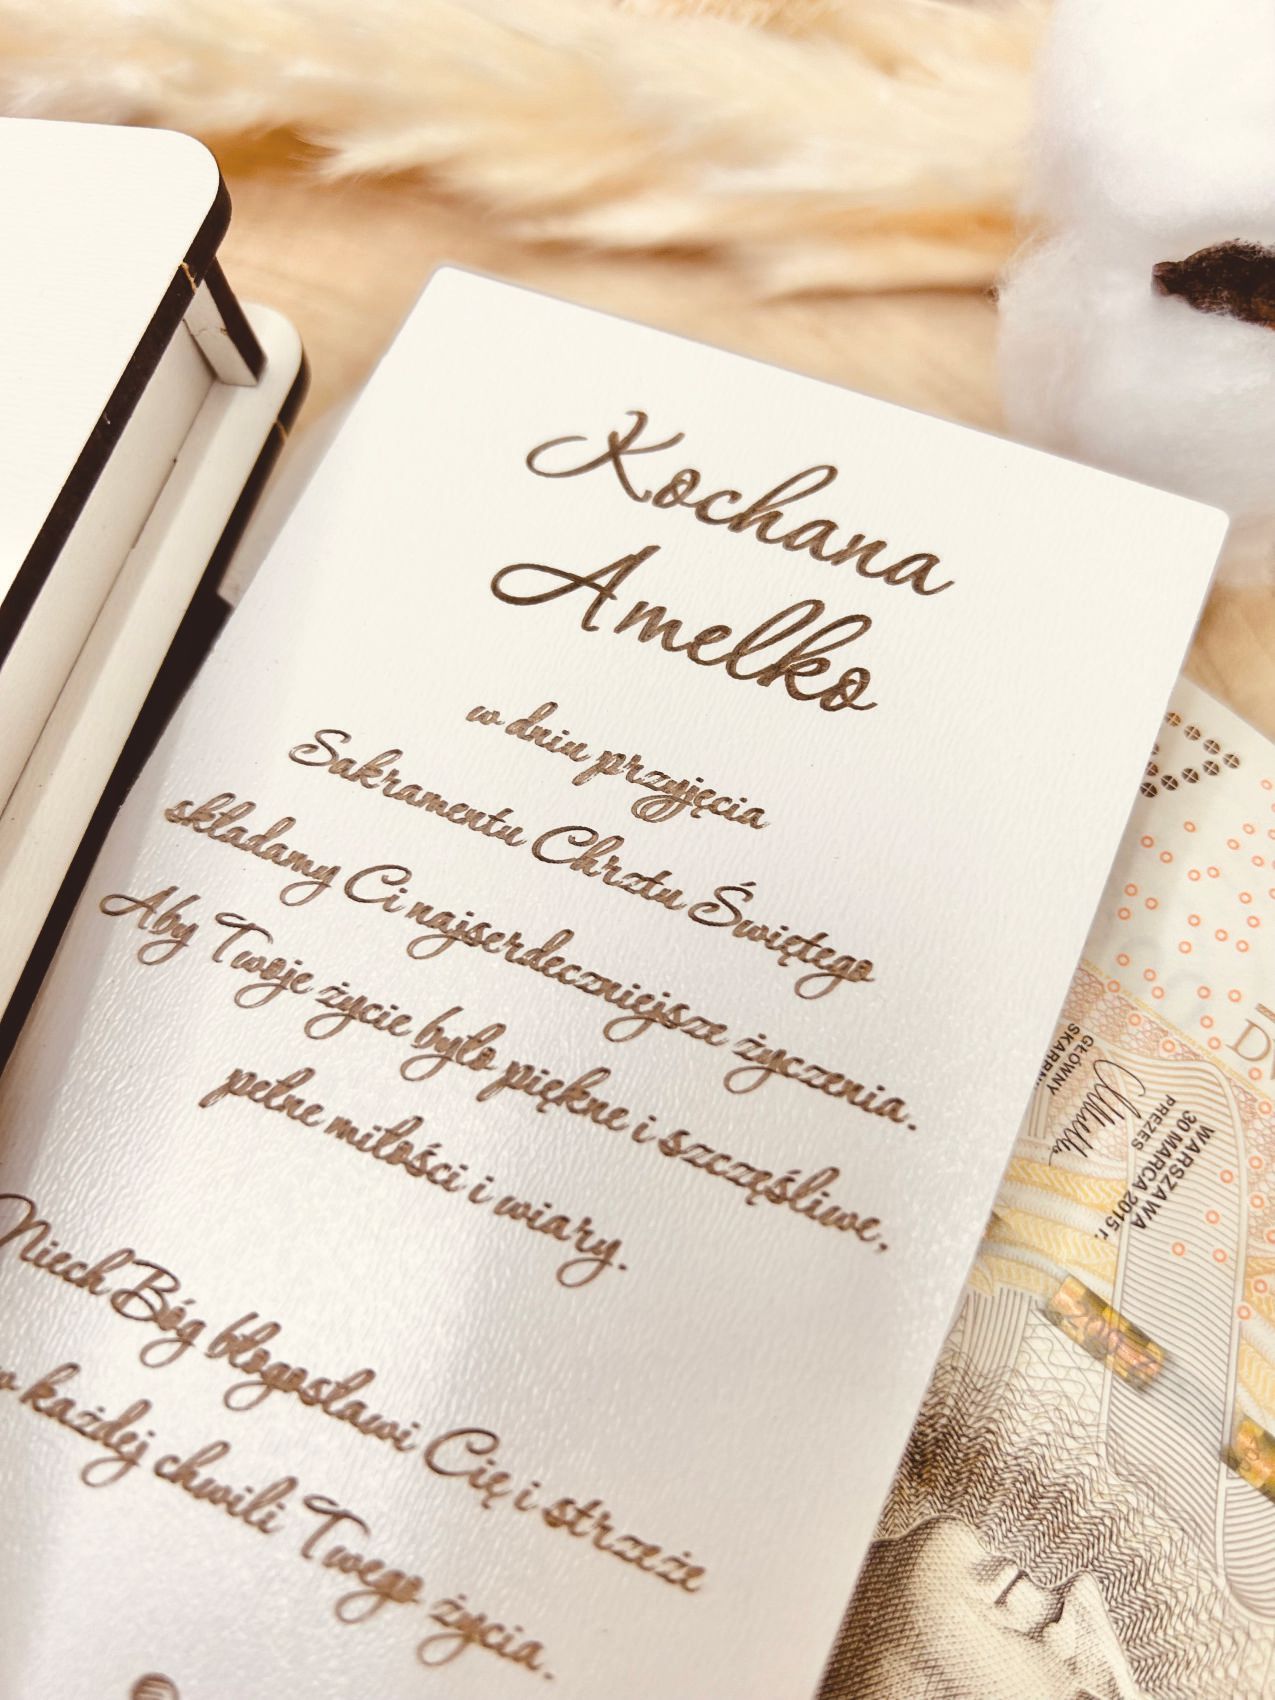 Kochana
Amelko
w dniu przyjęcia
Sakramentu Chrztu Świętego
składamy Ci najserdeczniejsze życzenia.
Aby Twoje życie było piękne i szczęśliwe,
pełne miłości i wiary.
Niech Bóg błogosławi Cię i strzeże
w każdej chwili Twego życia.
GŁÓWNY
WARSZAWA
30 MARCA 2015 r.
PREZES
200